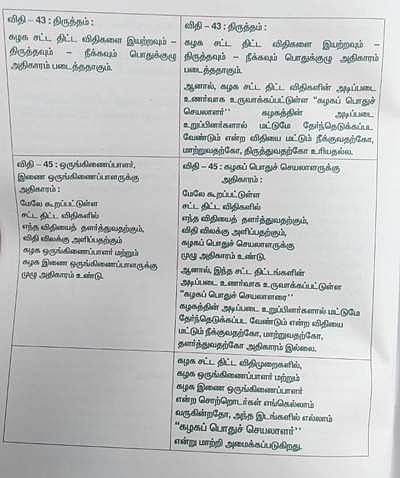 விதி – 43 : திருத்தம் :
கழக சட்ட திட்ட விதிகளை இயற்றவும் –
திருத்தவும் – நீக்கவும் பொதுக்குழு
அதிகாரம் படைத்ததாகும்.
விதி – 43 : திருத்தம் :
கழக சட்ட திட்ட விதிகளை இயற்றவும் –
திருத்தவும் – நீக்கவும் பொதுக்குழு அதிகாரம்
படைத்ததாகும்.
ஆனால், கழக சட்ட திட்ட விதிகளின் அடிப்படை
உணர்வாக உருவாக்கப்பட்டுள்ள "கழகப் பொதுச்
செயலாளர்" கழகத்தின் அடிப்படை
உறுப்பினர்களால் மட்டுமே தேர்ந்தெடுக்கப்பட
வேண்டும் என்ற விதியை மட்டும் நீக்குவதற்கோ,
மாற்றுவதற்கோ, திருத்துவதற்கோ உரியதல்ல.
விதி – 45 : ஒருங்கிணைப்பாளர்,
இணை ஒருங்கிணைப்பாளருக்கு
அதிகாரம் :
மேலே கூறப்பட்டுள்ள
சட்ட திட்ட விதிகளில்
எந்த விதியைத் தளர்த்துவதற்கும்,
விதி விலக்கு அளிப்பதற்கும்
கழக ஒருங்கிணைப்பாளர் மற்றும்
கழக இணை ஒருங்கிணைப்பாளருக்கு
முழு அதிகாரம் உண்டு.
விதி – 45 : கழகப் பொதுச் செயலாளருக்கு
அதிகாரம் :
மேலே கூறப்பட்டுள்ள
சட்ட திட்ட விதிகளில்
எந்த விதியைத் தளர்த்துவதற்கும்,
விதி விலக்கு அளிப்பதற்கும்,
கழகப் பொதுச் செயலாளருக்கு
முழு அதிகாரம் உண்டு.
ஆனால், இந்த சட்ட திட்டங்களின்
அடிப்படை உணர்வாக உருவாக்கப்பட்டுள்ள
"கழகப் பொதுச் செயலாளரை"
கழகத்தின் அடிப்படை உறுப்பினர்கள் மட்டுமே
தேர்ந்தெடுக்கப்பட வேண்டும் என்ற விதியை
மட்டும் நீக்குவதற்கோ, மாற்றுவதற்கோ,
தளர்த்துவதற்கோ அதிகாரம் இல்லை.
கழக சட்ட திட்ட விதிமுறைகளில்,
கழக ஒருங்கிணைப்பாளர் மற்றும்
கழக இணை ஒருங்கிணைப்பாளர்
என்ற சொற்றொடர்கள் எங்கெல்லாம்
வருகின்றதோ, அந்த இடங்களில் எல்லாம்
"கழகப் பொதுச் செயலாளர்"
என்று மாற்றி அமைக்கப்படுகிறது.